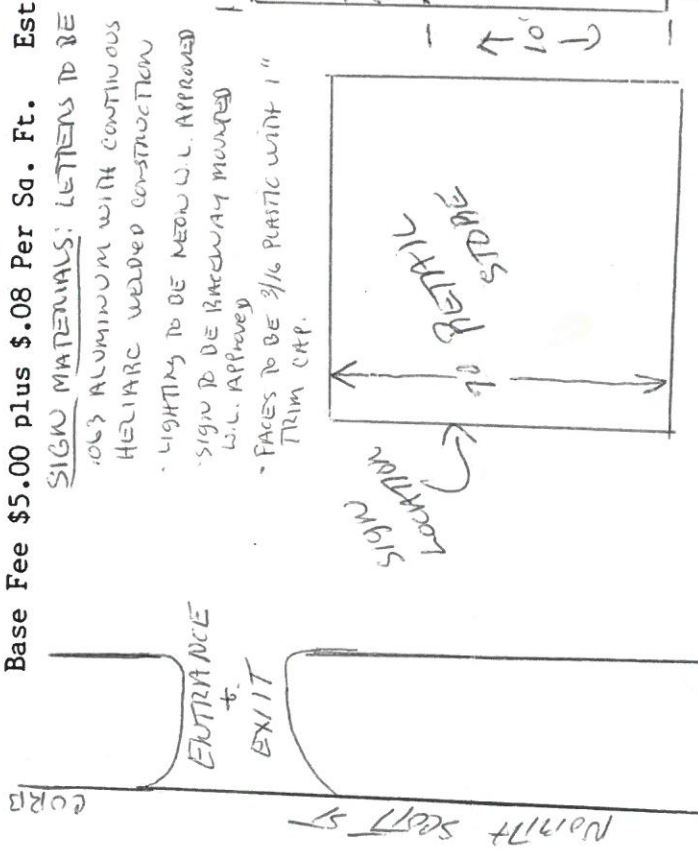 Base Fee $5.00 plus $.08 Per Sq. Ft. Est
SIGN MATERIALS: LETTERS TO BE
.063 ALUMINUM WITH CONTINUOUS
HELIARC WELDED CONSTRUCTION
· LIGHTING TO BE NEON U.L. APPROVED
· SIGN TO BE RACEWAY MOUNTED
U.L. APPROVED
· FACES TO BE 3/16 PLASTIC WITH 1"
TRIM CAP.
10'
RETAIL
STORE
SIGN
LOCATION
ENTRANCE
+
EXIT
CURB
NORTH SCOTT ST